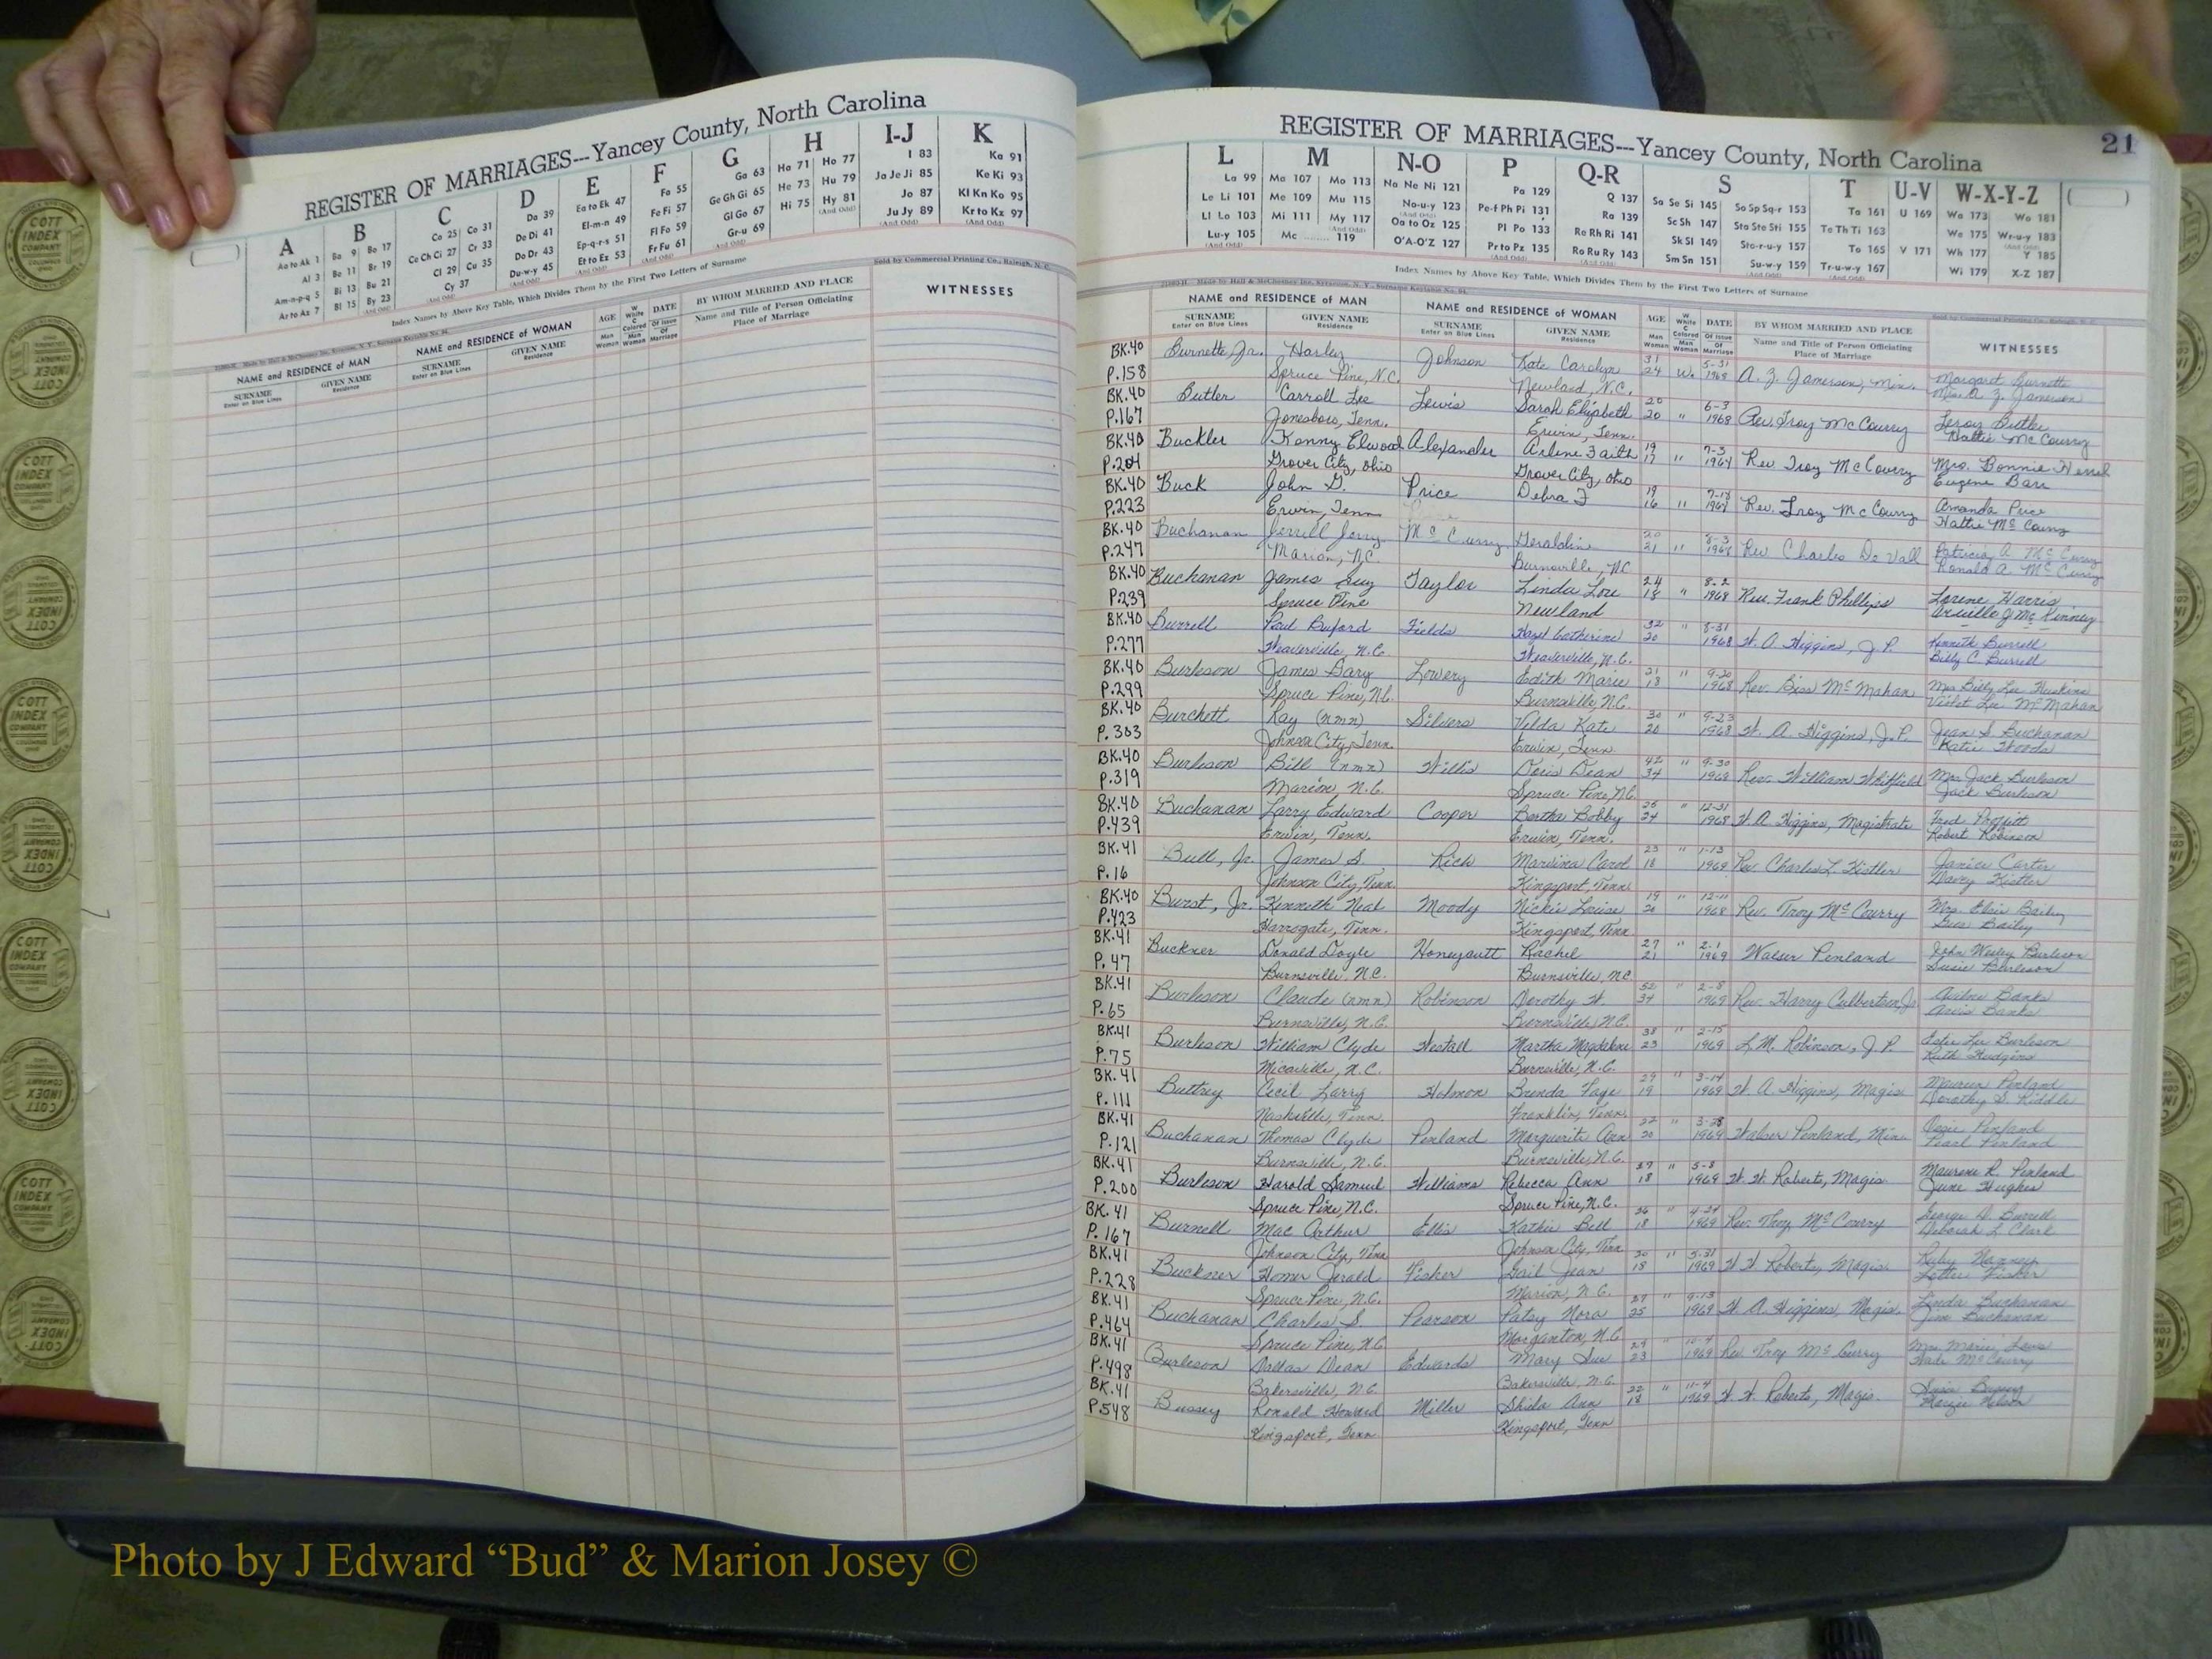 REGISTER OF MARRIAGES---Yancey County, North Carolina
A B C D E F G H I-J K
Aa to Ak 1
Al 3
Am-n-p-q 5
Ar to Az 7
Ba 9 Bo 17
Be 11 Br 19
Bi 13 Bu 21
Bl 15 By 23
(And Odd)
Ca 25 Co 31
Ce Ch Ci 27 Cr 33
Cl 29 Cu 35
Cy 37
(And Odd)
Da 39
De Di 41
Do Dr 43
Du-w-y 45
(And Odd)
Ea to Ek 47
El-m-n 49
Ep-q-r-s 51
Et to Ez 53
(And Odd)
Fa 55
Fe Fi 57
Fl Fo 59
Fr Fu 61
(And Odd)
Ga 63
Ge Gh Gi 65
Gl Go 67
Gr-u 69
(And Odd)
Ha 71 Ho 77
He 73 Hu 79
Hi 75 Hy 81
(And Odd)
I 83
Ja Je Ji 85
Jo 87
Ju Jy 89
(And Odd)
Ka 91
Ke Ki 93
Kl Kn Ko 95
Kr to Kz 97
(And Odd)
Index Names by Above Key Table, Which Divides Them by the First Two Letters of Surname
Sold by Commercial Printing Co., Raleigh, N. C.
NAME and RESIDENCE of MAN
SURNAME
Enter on Blue Lines
GIVEN NAME
Residence
NAME and RESIDENCE of WOMAN
SURNAME
Enter on Blue Lines
GIVEN NAME
Residence
AGE
Man
Woman
W
White
C
Colored
Man
Woman
DATE
Of Issue
Of
Marriage
BY WHOM MARRIED AND PLACE
Name and Title of Person Officiating
Place of Marriage
WITNESSES
21
REGISTER OF MARRIAGES---Yancey County, North Carolina
L M N-O P Q-R S T U-V W-X-Y-Z
La 99
Le Li 101
Ll Lo 103
Lu-y 105
(And Odd)
Ma 107 Mo 113
Me 109 Mu 115
Mi 111 My 117
(And Odd)
Mc ........ 119
Na Ne Ni 121
No-u-y 123
(And Odd)
Oa to Oz 125
O'A-O'Z 127
Pa 129
Pe-f Ph Pi 131
Pl Po 133
Pr to Pz 135
(And Odd)
Q 137
Ra 139
Re Rh Ri 141
Ro Ru Ry 143
(And Odd)
Sa Se Si 145 So Sp Sq-r 153
Sc Sh 147 Sta Ste Sti 155
Sk Sl 149 Sto-r-u-y 157
Sm Sn 151 Su-w-y 159
(And Odd)
Ta 161
Te Th Ti 163
To 165
Tr-u-w-y 167
(And Odd)
U 169
V 171
Wa 173 Wo 181
We 175 Wr-u-y 183
(And Odd)
Wh 177 Y 185
Wi 179 X-Z 187
Index Names by Above Key Table, Which Divides Them by the First Two Letters of Surname
NAME and RESIDENCE of MAN
SURNAME
Enter on Blue Lines
GIVEN NAME
Residence
NAME and RESIDENCE of WOMAN
SURNAME
Enter on Blue Lines
GIVEN NAME
Residence
AGE
Man
Woman
W
White
C
Colored
Man
Woman
DATE
Of Issue
Of
Marriage
BY WHOM MARRIED AND PLACE
Name and Title of Person Officiating
Place of Marriage
WITNESSES
BK.40 Burnette, Jr. Harley Johnson Kate Carolyn 31 5-31 Margaret Burnette
P.158 Spruce Pine, N.C. Newland, N.C. 24 W. 1968 A. Z. Jamerson, Min. Mrs. A. Z. Jamerson
BK.40 Butler Carroll Lee Lewis Sarah Elizabeth 20 6-3 Leroy Butler
P.167 Jonesboro, Tenn. Erwin, Tenn. 20 " 1968 Rev. Troy McCourry Hattie McCourry
BK.40 Buckler Kenny Elwood Alexander Arlene Faith 19 7-3 Mrs. Bonnie
P.204 Grover City, Ohio Grover City, Ohio 17 " Rev. Troy McCourry Eugene Barr
BK.40 Buck John G. Price Debra F 19 Amanda Price
P.223 Erwin, Tenn 16 " Rev. Troy McCourry Hattie McCourry
BK.40 Buchanan Jerrell Jerry McCurry Geraldine 20 8-3 Patricia A. McCurry
P.247 Marion, N.C. Burnsville, NC 21 " 1968 Rev Charles De Vall Ronald A. McCurry
BK.40 Buchanan James Guy Taylor Linda Lou 24 8-2 Lorene Harris
P.239 Spruce Pine Newland 18 " 1968 Rev. Frank Phillips McKinney
BK.40 Burrell Paul Buford Fields Hazel Catherine 32 8-31 Kenneth Burrell
P.277 Weaverville, N.C. Weaverville, N.C. 20 " 1968 W. A. Higgins, J.P. Billy C. Burrell
BK.40 Burleson James Gary Lowery Edith Marie 21 9-20 Mrs Billy Lee Huskins
P.299 Spruce Pine, N.C. Burnsville N.C. 18 " 1968 Rev. Biss McMahan Violet Lee McMahan
BK.40 Burchett Ray (nmn) Silvers Velda Kate 30 9-23 Jean S. Buchanan
P. 303 Johnson City, Tenn. Erwin, Tenn 20 " 1968 W. A. Higgins, J.P. Katie Woods
BK.40 Burleson Bill (nmn) Willis Doris Dean 42 9-30 Mrs Jack Burleson
P.319 Marion, N.C. Spruce Pine, N.C. 34 " 1968 Rev. William Whitfield Jack Burleson
BK.40 Buchanan Larry Edward Cooper Bertha Bobby 25 12-31 Fred Proffitt
P.439 Erwin, Tenn. Erwin, Tenn. 24 " 1968 W. A. Higgins, Magistrate Robert Robinson
BK.41 Bull, Jr. James S. Rich Marvina Carol 23 1-13 Janice Carter
P. 16 Johnson City, Tenn. Kingsport, Tenn. 18 " 1969 Rev. Charles L. Kistler Kistler
BK.40 Burst, Jr. Kenneth Neal Moody Nickie Louise 19 12-11 Mrs. Bailey
P.423 Harrogate, Tenn. Kingsport, Tenn 20 " 1968 Rev. Troy McCourry Bailey
BK.41 Buckner Donald Doyle Honeycutt Rachel 27 2-1 John Wesley Burleson
P. 47 Burnsville, N.C. Burnsville, N.C. 21 " 1969 Walser Penland Susie Burleson
BK.41 Burleson Claude (nmn) Robinson Dorothy H. 52 2-8 Banks
P. 65 Burnsville, N.C. Burnsville, N.C. 34 " 1969 Rev. Harry Culbertson, Jr Banks
BK.41 Burleson William Clyde Westall Martha Magdalene 38 2-15 Lee Burleson
P.75 Micaville, N.C. Burnsville, N.C. 23 " 1969 L.M. Robinson, J.P. Ruth Hudgins
BK. 41 Buttrey Cecil Larry Holmon Brenda Faye 29 3-14 Maureen Penland
P. 111 Nashville, Tenn. Franklin, Tenn. 19 " 1969 W. A. Higgins, Magis. Dorothy S. Riddle
BK.41 Buchanan Thomas Clyde Penland Marguerite Ann 22 3-28 Ossie Penland
P.121 Burnsville, N.C. Burnsville, N.C. 20 " 1969 Walser Penland, Min. Pearl Penland
BK.41 Burleson Harold Samuel Williams Rebecca Ann 37 5-8 Maureene R. Penland
P.200 Spruce Pine, N.C. Spruce Pine, N.C. 18 " 1969 W. W. Roberts, Magis. June Hughes
BK. 41 Burnell Mac Arthur Ellis Kathie Bell
P. 167 Johnson City, Tenn Johnson City, Tenn 18 " 1969 Rev. Troy McCourry Deborah L. Clark
BK.41 Buckner Homer Jerald Fisher Gail Jean 20 5-31
P.228 Spruce Pine, N.C. Marion, N.C. 18 " 1969 W W Roberts, Magis. Fisher
BK.41 Buchanan Charles S. Pearson Patsy Nora 9-13 Linda Buchanan
P.464 Spruce Pine, N.C Morganton, N.C. 25 " 1969 W. A. Higgins, Magis. Jim Buchanan
BK.41 Burleson Dallas Dean Edwards Mary Sue 29 10-4 Mrs Marie Lewis
P.498 Bakersville, N.C. Bakersville, N.C. 23 " 1969 Rev. Troy McCurry Wade McCourry
BK.41 Bussey Ronald Howard Miller Shiela Ann 22 11-4
P.548 Kingsport, Tenn. Kingsport, Tenn 18 " 1969 W. W. Roberts, Magis.
COTT
INDEX
COMPANY
Photo by J Edward “Bud” & Marion Josey ©